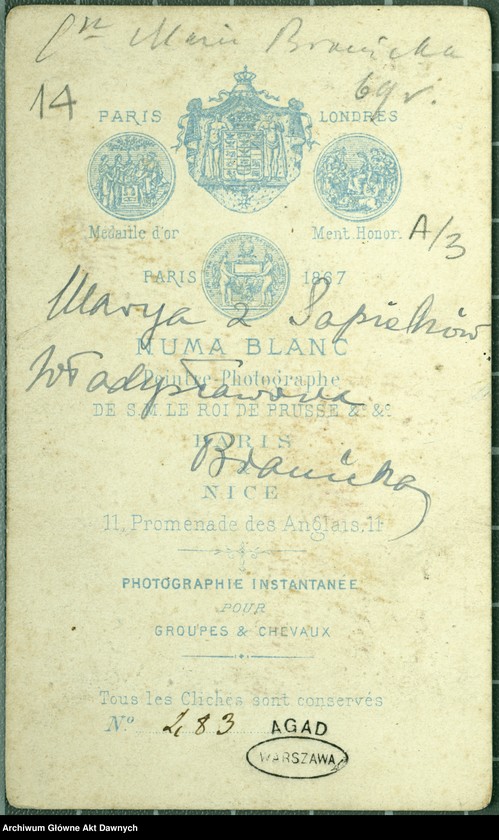 Css Marie Branicka
69 r.
14
PARIS LONDRES
Medaille d'or Ment. Honor. A/3
PARIS 1867
Marya z Sapiehów
NUMA BLANC
Peintre-Photographe
Władysławowa
DE S.M. LE ROI DE PRUSSE &c &c
PARIS
Branicka
&
NICE
11, Promenade des Anglais, 11
PHOTOGRAPHIE INSTANTANÉE
POUR
GROUPES & CHEVAUX
Tous les Clichés sont conservés
No. 283
AGAD
WARSZAWA
Archiwum Główne Akt Dawnych